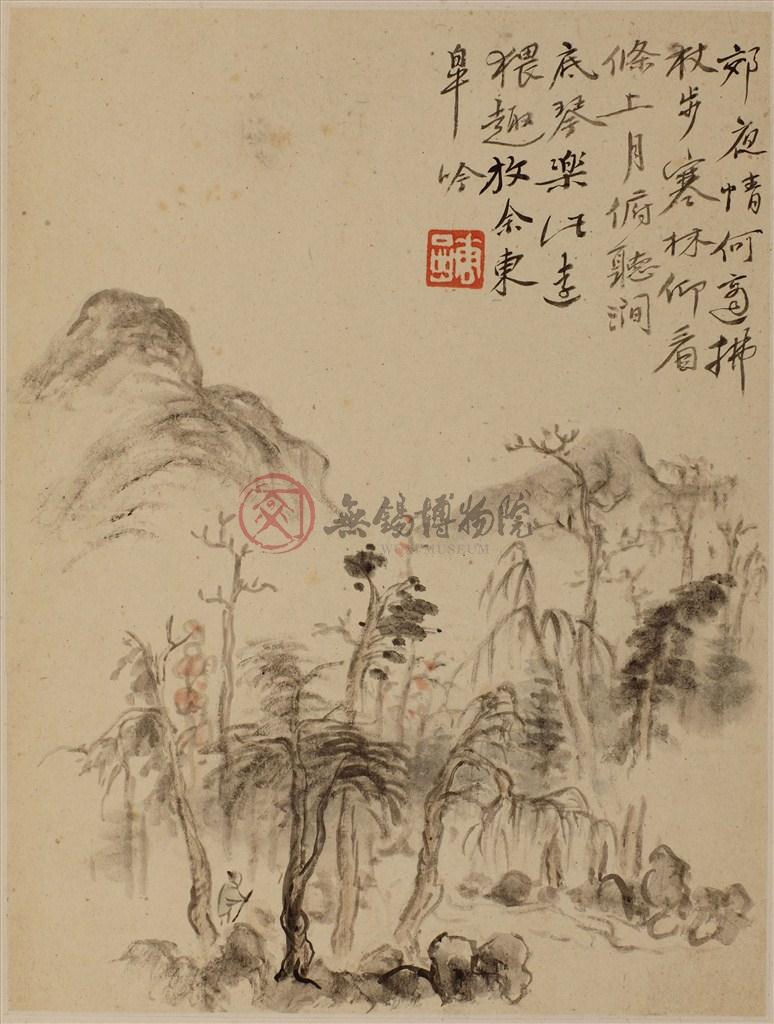 郊夜情何適拂
杖步寒林仰看
條上月俯聽澗
底琴樂
猥趣放余東
皋吟
無錫博物院
WUXI MUSEUM